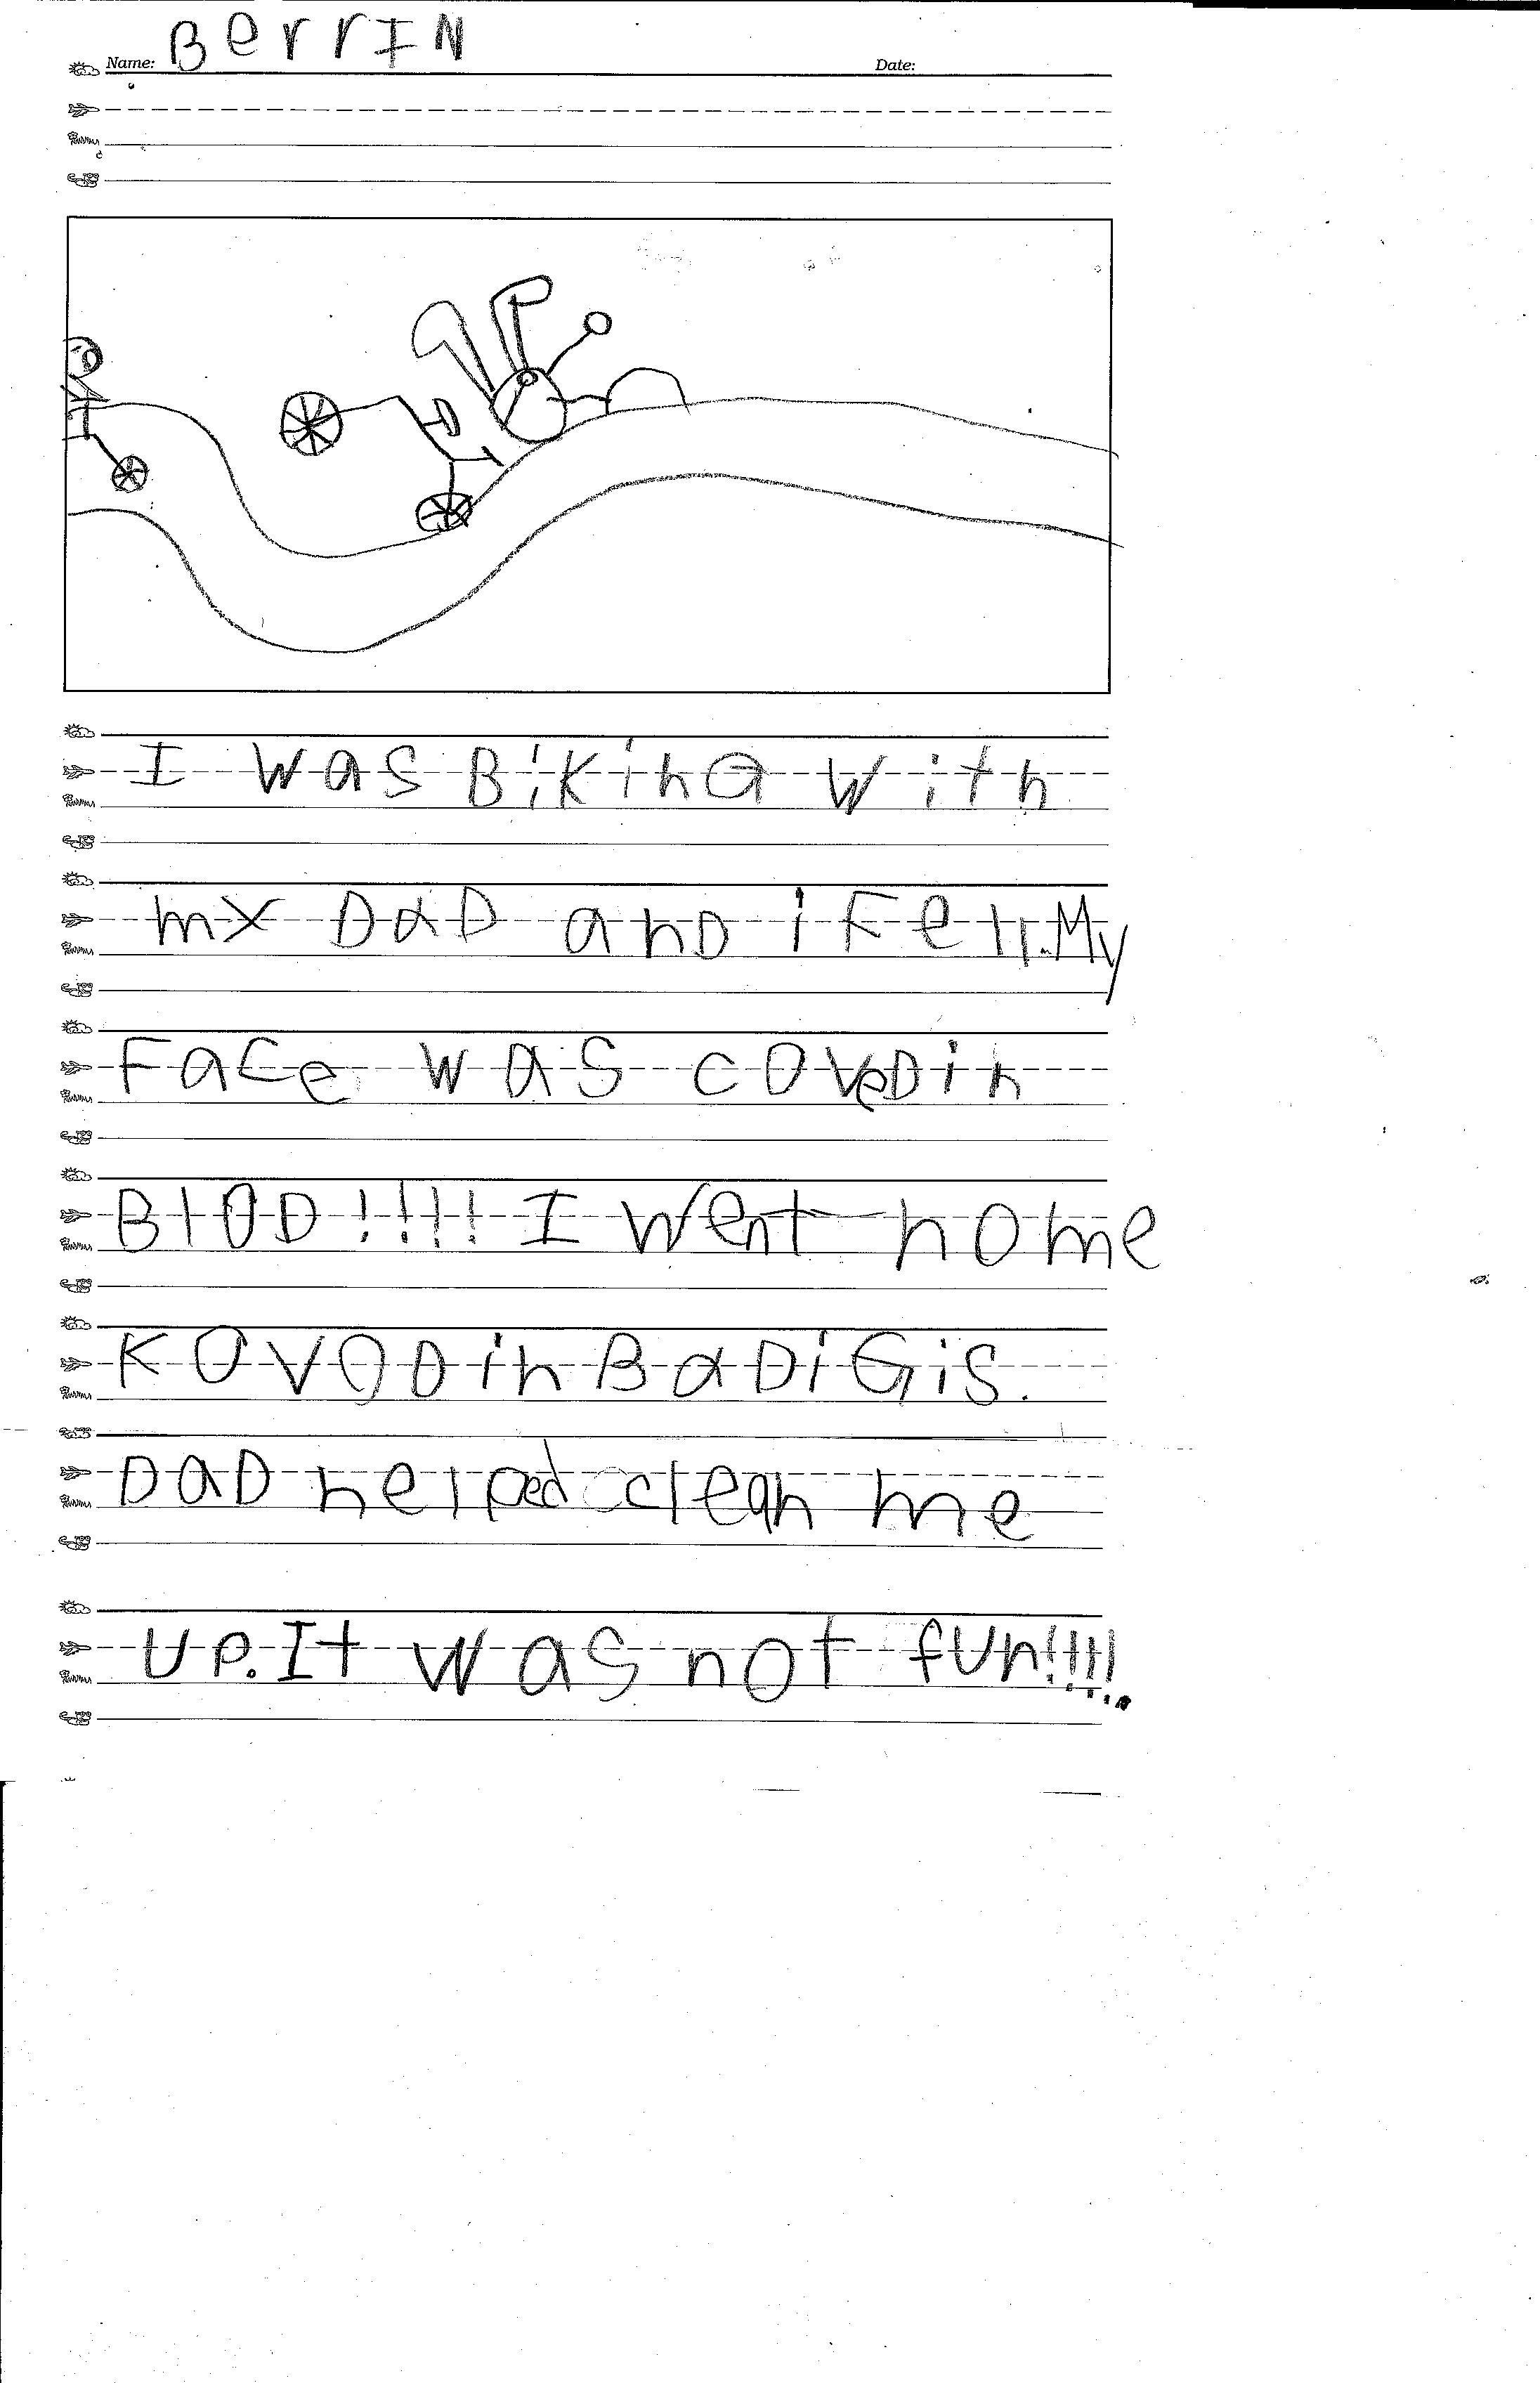 Name: BerrIN Date:
I was BiKinG with
mx DaD anD i Fell. My
Face was coveD in
BlOD!!!! I went home
KOVOD in BaDiGis.
DaD helped clean me
up. It was not fun!!!!